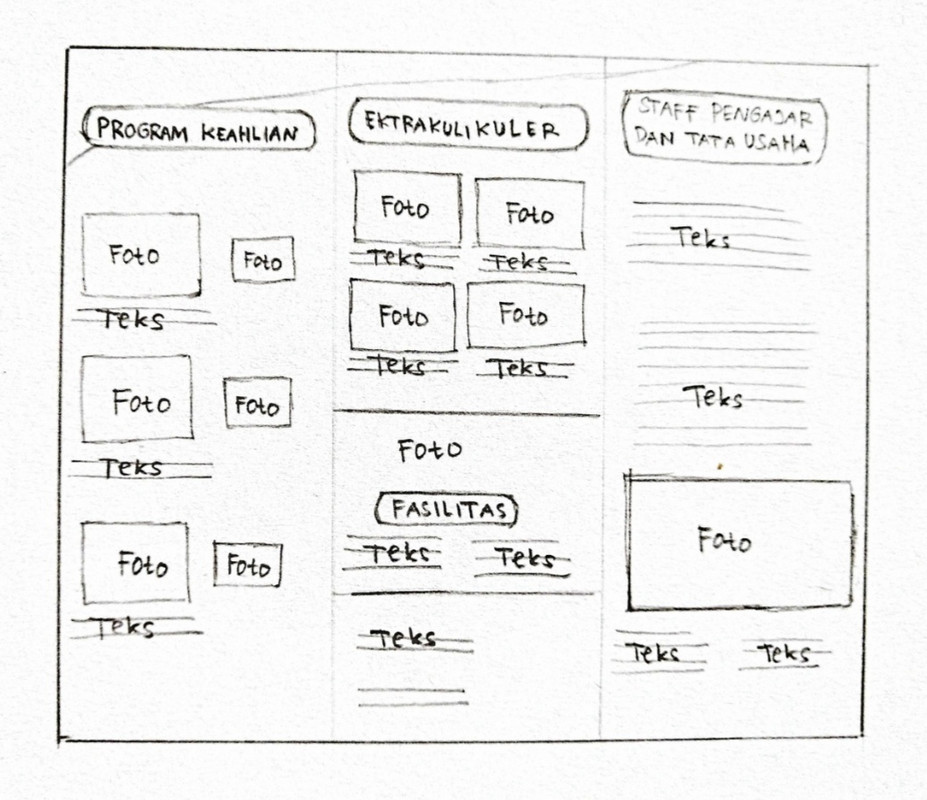 PROGRAM KEAHLIAN
Foto
Foto
Teks
Foto
Foto
Teks
Foto
Foto
Teks
EKTRAKULIKULER
Foto
Foto
Teks
Teks
Foto
Foto
Teks
Teks
Foto
FASILITAS
Teks
Teks
Teks
STAFF PENGAJAR
DAN TATA USAHA
Teks
Teks
Foto
Teks
Teks